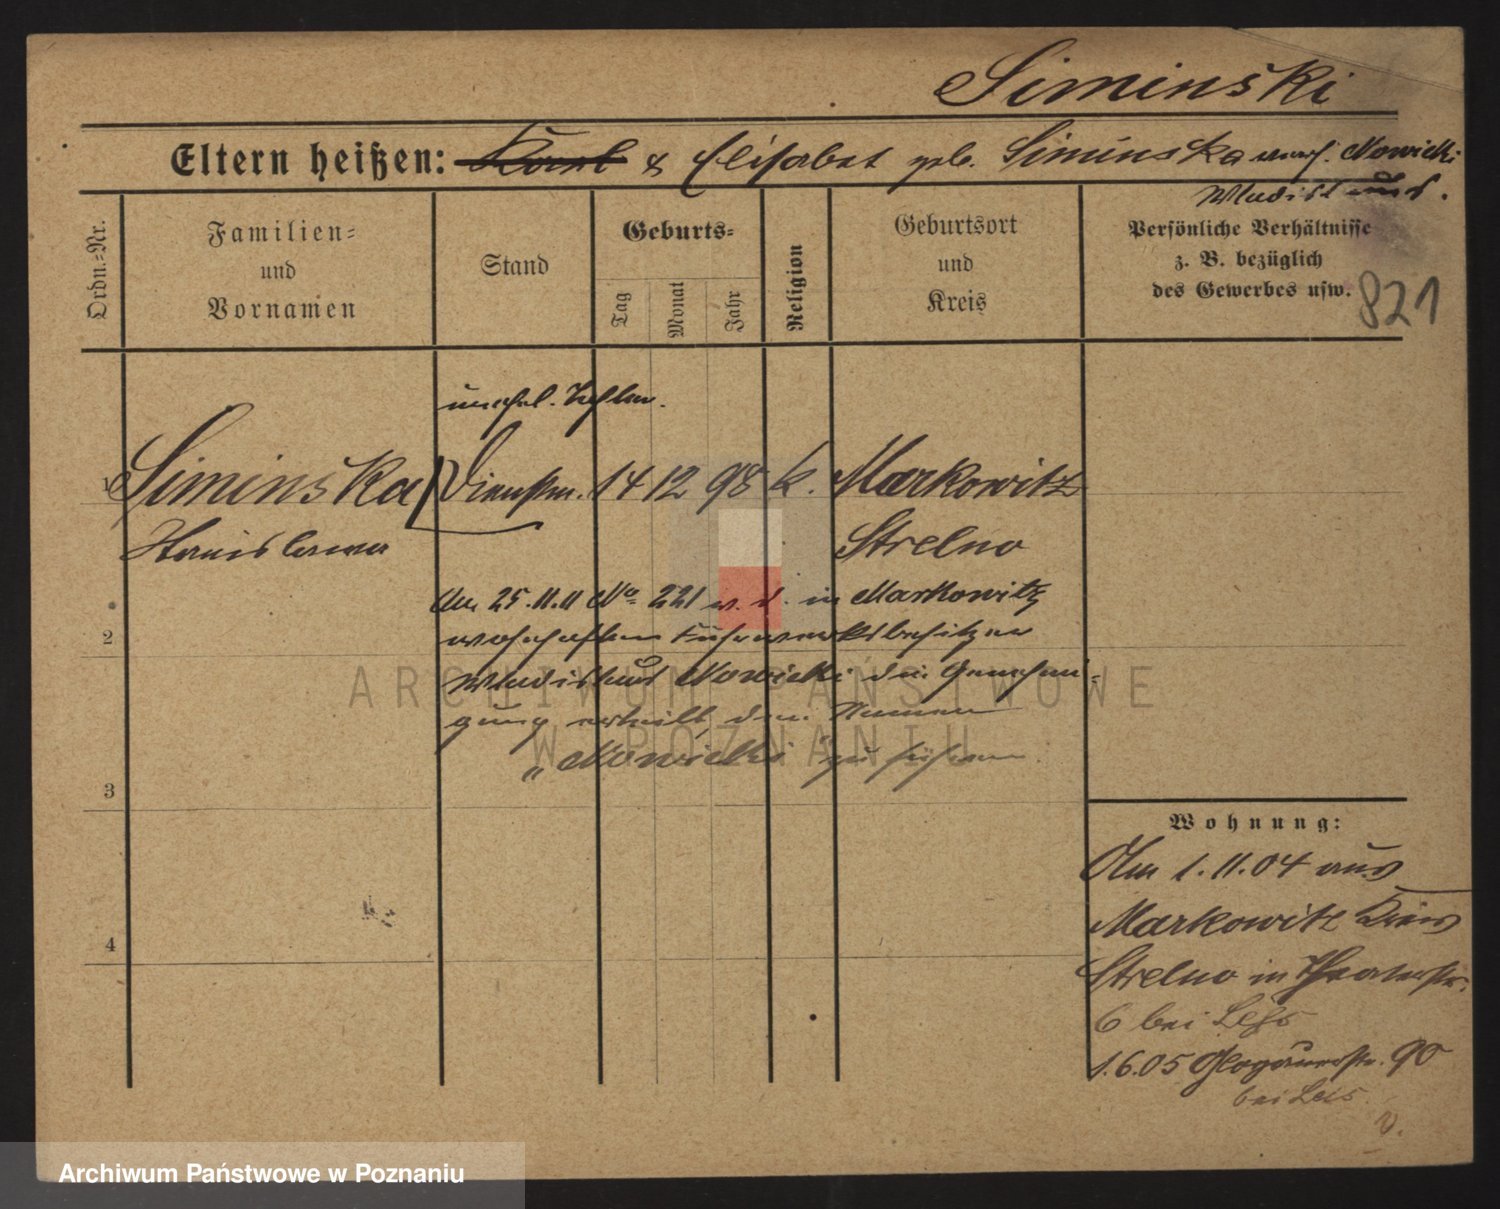 Siminski
Eltern heißen: Karl & Elisabet geb. Siminska Nowicki
Wladislaus.
Ordn.-Nr.
Familien-
und
Vornamen
Stand
Geburts-
Tag
Monat
Jahr
Religion
Geburtsort
und
Kreis
Persönliche Verhältnisse
z. B. bezüglich
des Gewerbes usw.
821
unehel. Tochter.
1 Siminska Dienstm. 14 12 98 k. Markowitz
Stanislawa Strelno
Am 25.11.11 No 221 w. d. in Markowitz
2
wohnhaften Fuhrwerksbesitzer
Wladislaus Nowicki die Genehmi-
gung erteilt, den Namen
„Nowicki" zu führen.
3
4
Wohnung:
Am 1.11.04 aus
Markowitz Kreis
Strelno in Theaterstr.
6 bei
1.6.05 Glogauerstr. 90
bei
v.
ARCHIWUM PAŃSTWOWE
W POZNANIU
Archiwum Państwowe w Poznaniu